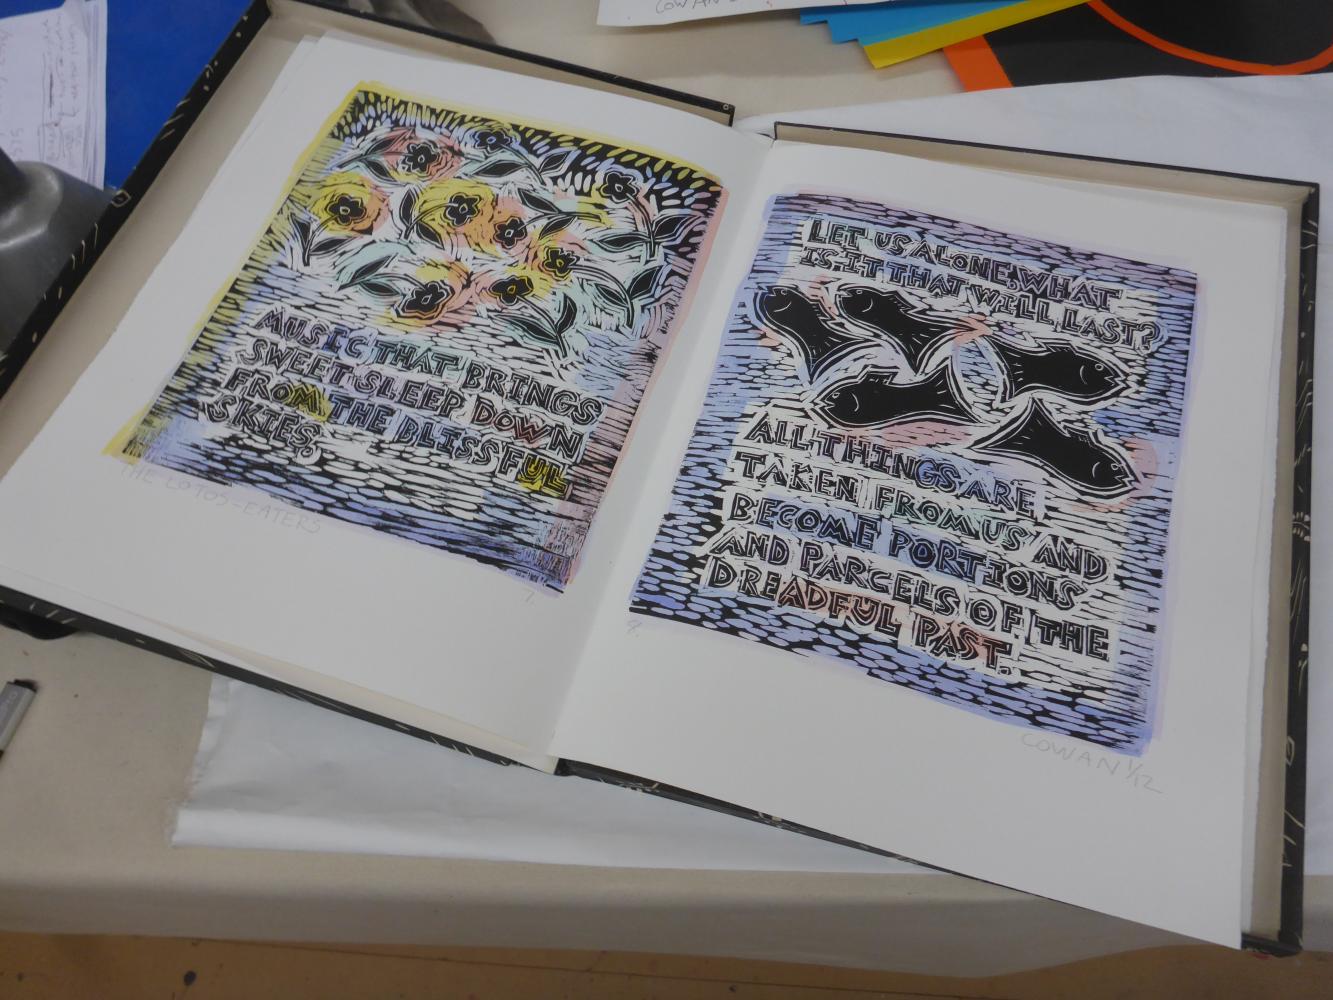 MUSIC THAT BRINGS
SWEET SLEEP DOWN
FROM THE BLISSFUL
SKIES.
THE LOTOS-EATERS
7.
LET US ALONE, WHAT
IS IT THAT WILL LAST?
ALL THINGS ARE
TAKEN FROM US AND
BECOME PORTIONS
AND PARCELS OF THE
DREADFUL PAST.
8.
COWAN 1/12
COWAN